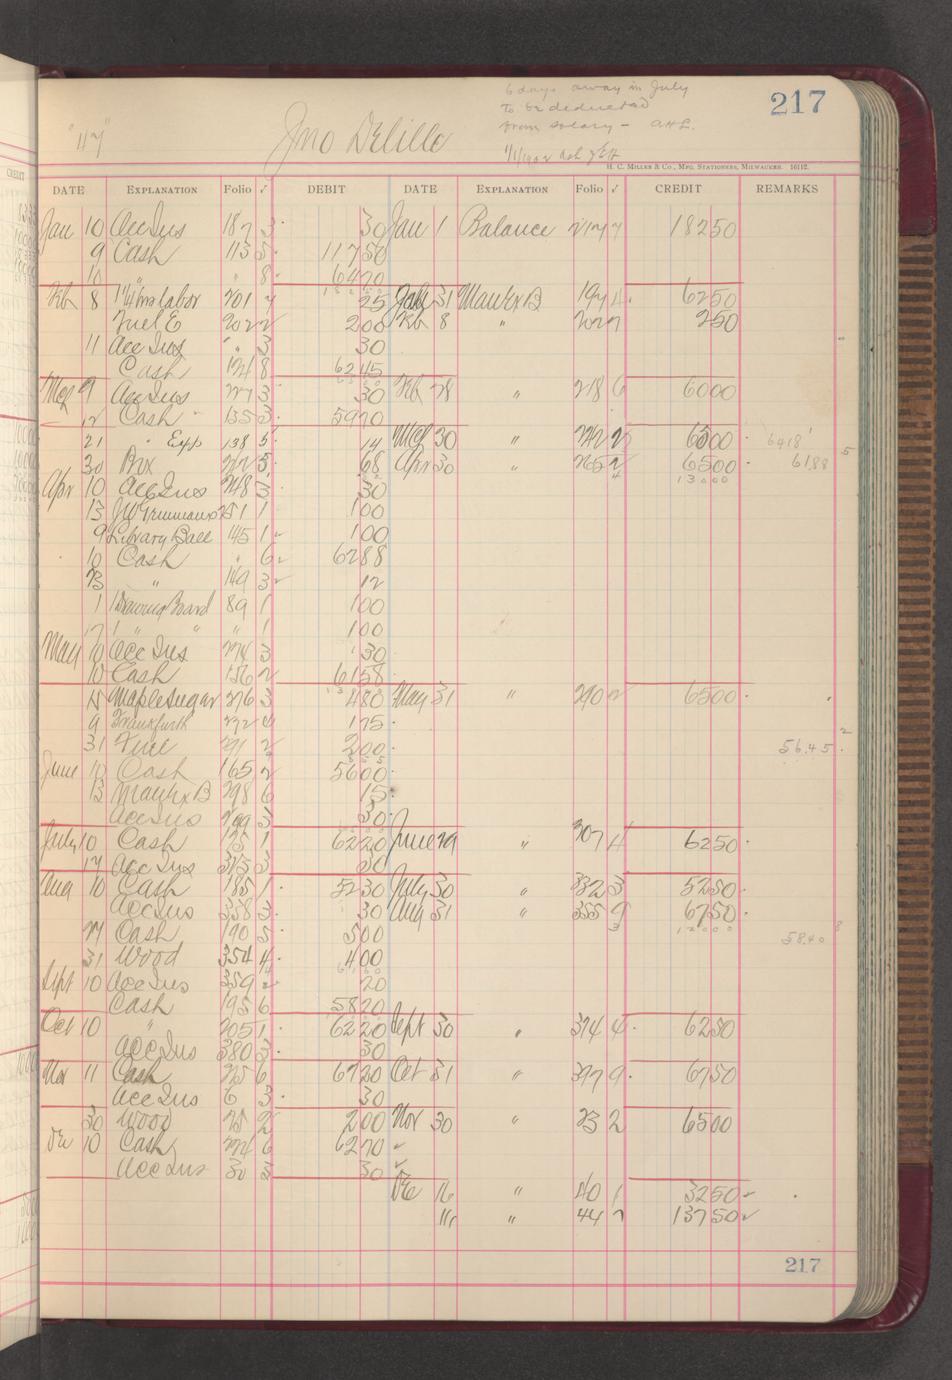 6 days away in July
217
to be deducted
"117"
Jno Delille
from salary - AHL.
H. C. MILLER & CO., MFG. STATIONERS, MILWAUKEE. 16112.
DATE EXPLANATION Folio ✓ DEBIT DATE EXPLANATION Folio ✓ CREDIT REMARKS
Jan 10 Acc Ins 187 3 30 Jan 1 Balance 217 7 18250
9 Cash 113 5 11750
10 " " 8 6470
Feb 8 labor 201 25 31 194 4 6250
Fuel E 202 2 200 Feb 8 " 202 7 250
11 Acc Ins " 3 30
Cash 124 8 6245
Mch 9 Acc Ins 227 3 30 Feb 28 " 218 6 6000
12 Cash 135 3 5970
21 " Exp 138 5 14 Mch 30 " 242 2 6500 6418
30 Box 242 5 68 Apr 30 " 265 2 6500 6188
13000
Apr 10 Acc Ins 248 3 30
13 251 1 100
9 Library Ball 145 1 100
10 Cash " 6 6288
23 " 149 3 12
1 Drawing Board 89 1 100
17 " " " 1 100
May 10 Acc Ins 274 3 30
10 Cash 156 2 6158
Maple Sugar 276 3 480 May 31 " 290 2 6500
9 Frankfurts 272 4 175
31 Fuel 291 2 200 56.45
June 10 Cash 165 2 5600
13 298 6 15
Acc Ins 299 3 30
July 10 Cash 175 1 6220 June 29 " 307 4 6250
17 Acc Ins 315 3 30
Aug 10 Cash 185 1 5230 July 30 " 332 3 5250
Acc Ins 338 3 30 Aug 31 " 355 9 6750
27 Cash 190 5 500 12000 58.40
31 Wood 354 4 400
Sept 10 Acc Ins 359 2 20
Cash 195 6 5820
Oct 10 " 205 1 6220 Sept 30 " 374 4 6250
Acc Ins 380 3 30
Nov 11 Cash 215 6 6720 Oct 31 " 397 9 6750
Acc Ins 6 3 30
30 Wood 25 2 200 Nov 30 " 23 2 6500
De 10 Cash 224 6 6270
Acc Ins 30 3 30
De 16 " 40 1 3250
" " 44 7 13750
217